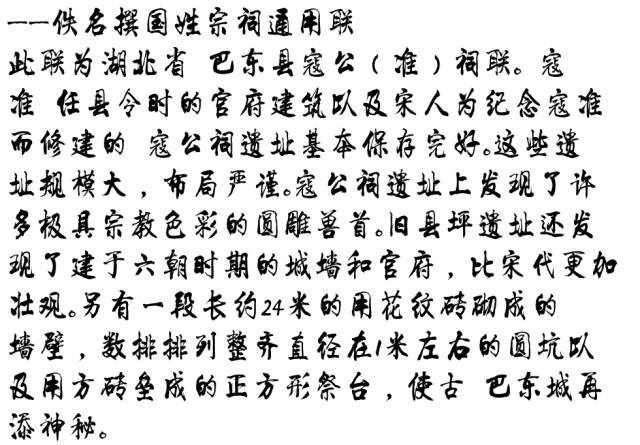 ——佚名撰国姓宗祠通用联
此联为湖北省 巴东县寇公（准）祠联。寇
准 任县令时的官府建筑以及宋人为纪念寇准
而修建的 寇公祠遗址基本保存完好。这些遗
址规模大，布局严谨。寇公祠遗址上发现了许
多极具宗教色彩的圆雕兽首。旧县坪遗址还发
现了建于六朝时期的城墙和官府，比宋代更加
壮观。另有一段长约24米的用花纹砖砌成的
墙壁，数排排列整齐直径在1米左右的圆坑以
及用方砖垒成的正方形祭台，使古 巴东城再
添神秘。